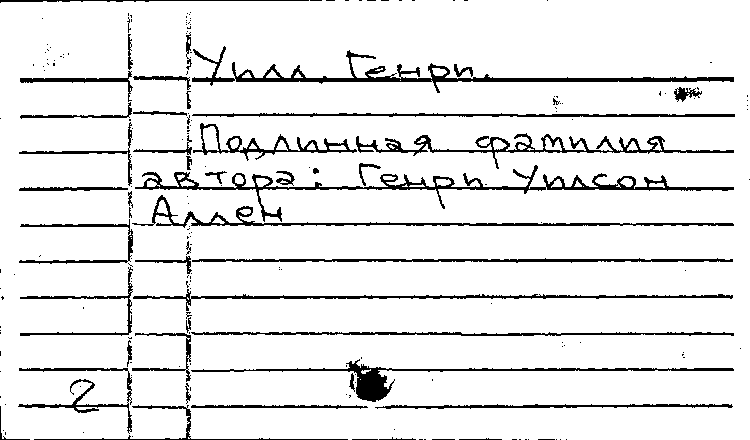 Уилл. Генри.
Подлинная фамилия
автора: Генри Уилсон
Аллен
2